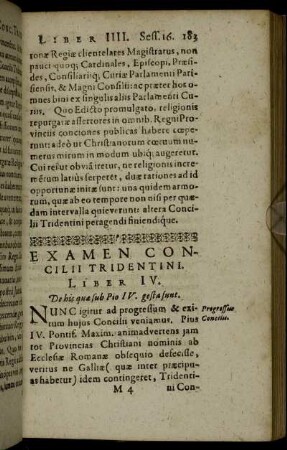 LIBER IIII. Sess. 16. 183
tonæ Regiæ clientelares Magistratus, non
pauci quoq; Cardinales, Episcopi, Præsi-
des, Consiliariiq; Curiæ Parlamenti Pari-
siensis, & Magni Consilii: ac præter hos
omnes bini ex singulis aliis Parlamenti Cu-
riis. Quo Edicto promulgato, religionis
repurgatæ assertores in omnib. Regni Pro-
vinciis conciones publicas habere cœpe-
runt: adeò ut Christianorum cœtuum nu-
merus mirum in modum ubiq; augeretur.
Cui rei ut obviā iretur, ne religionis incre-
mētum latiùs serperet, duæ rationes ad id
opportunæ initæ sunt: una quidem armo-
rum, quæ ab eo tempore non nisi per quæ-
dam intervalla quieverunt: altera Conci-
lii Tridentini peragendi finiendique.
EXAMEN CON-
CILII TRIDENTINI.
LIBER IV.
De his quæ sub Pio IV. gesta sunt.
NUNC igitur ad progressum & exi-
tum hujus Concilii veniamus. Pius
Progressus
Concilii.
IV. Pontif. Maxim. animadvertens jam
tot Provincias Christiani nominis ab
Ecclesiæ Romanæ obsequio defecisse,
veritus ne Galliæ (quæ inter præcipu-
as habetur) idem contingeret, Tridenti-
M 4 ni Con-